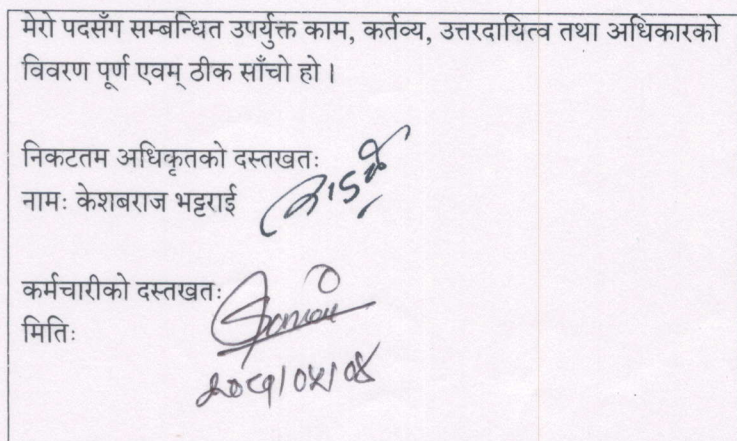 मेरो पदसँग सम्बन्धित उपर्युक्त काम, कर्तव्य, उत्तरदायित्व तथा अधिकारको
विवरण पूर्ण एवम् ठीक साँचो हो।
निकटतम अधिकृतको दस्तखतः
नामः केशबराज भट्टराई
कर्मचारीको दस्तखतः
मितिः